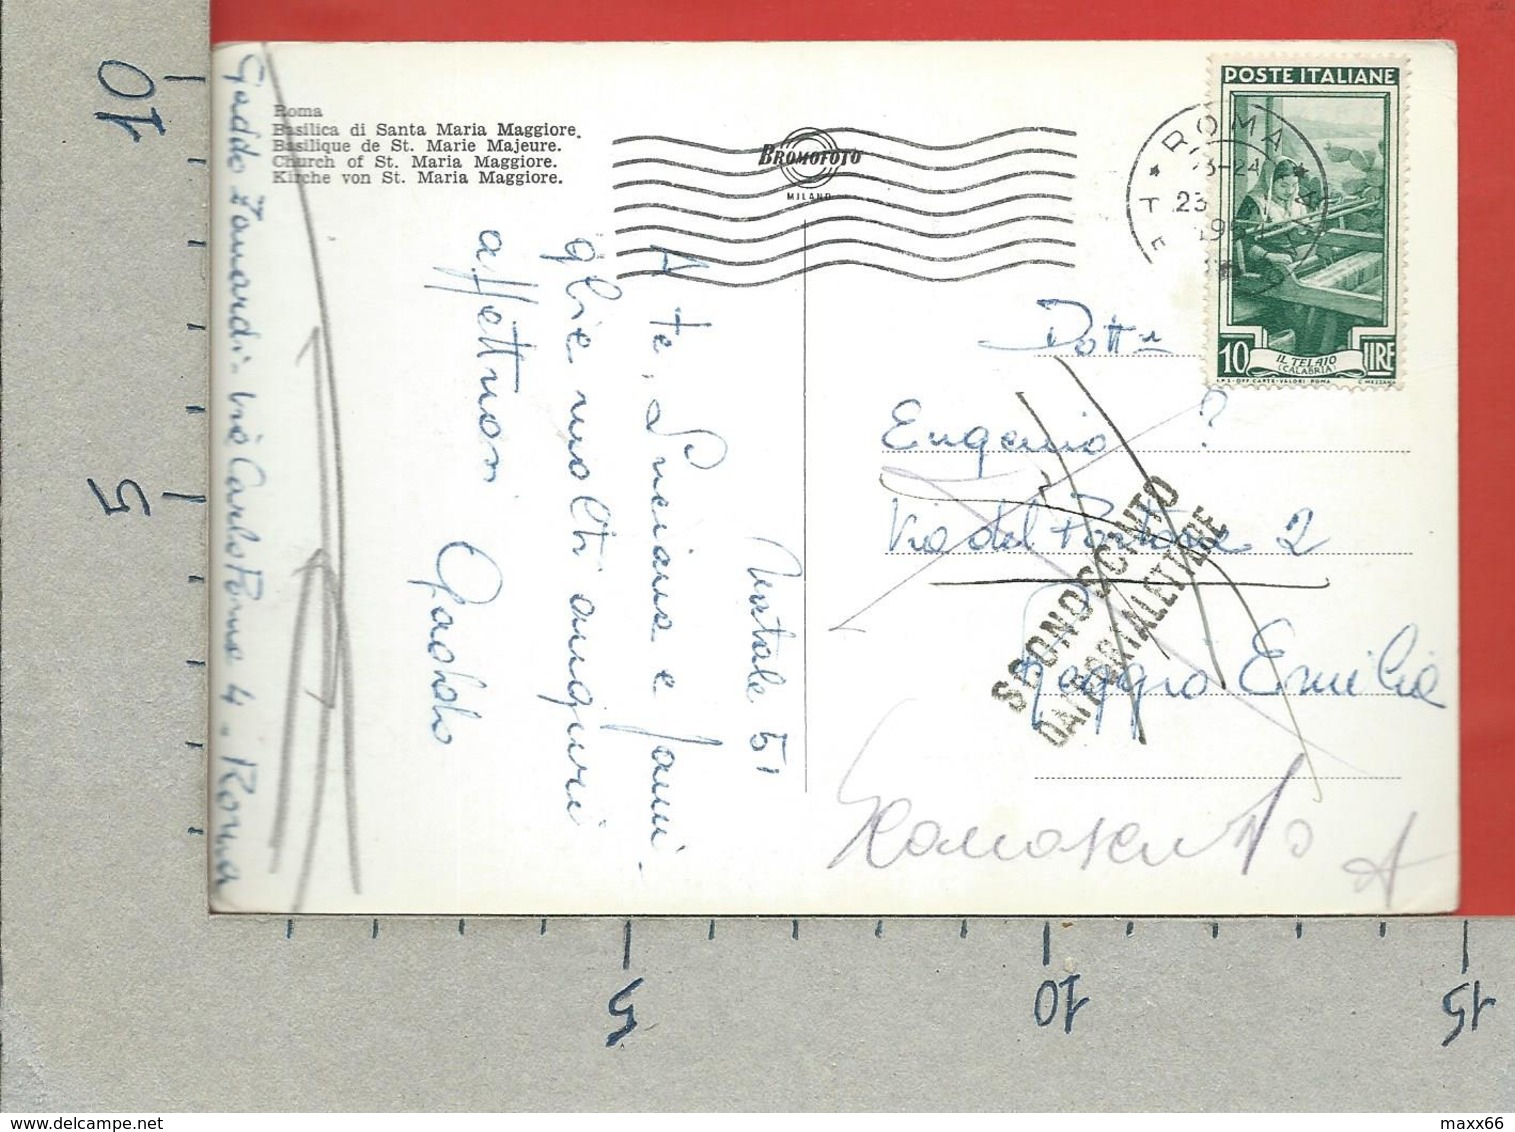 Roma
Basilica di Santa Maria Maggiore.
Basilique de St. Marie Majeure.
Church of St. Maria Maggiore.
Kirche von St. Maria Maggiore.
BROMOFOTO
MILANO
ROMA
23-24
23
POSTE ITALIANE
10 LIRE
IL TELAIO
(CALABRIA)
I.P.S. - OFF. CARTE - VALORI - ROMA
C. MEZZANA
Natale 51
A te, Luciana e fami
glie molti auguri
affettuosi
Gaddo
Gaddo Zanardi - via Carlo Poma 4 - Roma
Dott
Eugenio ?
Via del Portone 2
Reggio Emilia
SCONOSCIUTO
DAI PORTALETTERE
Sconosciuto
10
5
5
10
15
maxx66